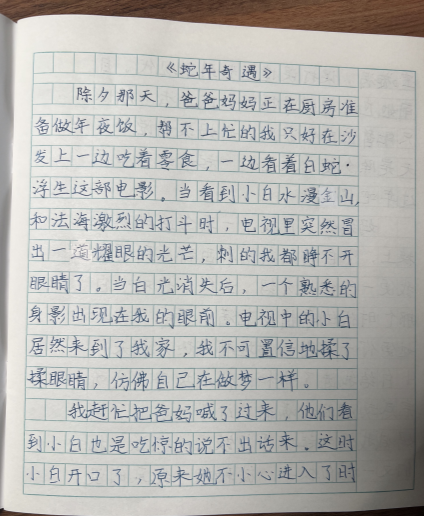 《蛇年奇遇》
除夕那天，爸爸妈妈正在厨房准
备做年夜饭，帮不上忙的我只好在沙
发上一边吃着零食，一边看着白蛇·
浮生这部电影。当看到小白水漫金山，
和法海激烈的打斗时，电视里突然冒
出一道耀眼的光芒，刺的我都睁不开
眼睛了。当白光消失后，一个熟悉的
身影出现在我的眼前。电视中的小白
居然来到了我家，我不可置信地揉了
揉眼睛，仿佛自己在做梦一样。
我赶忙把爸妈喊了过来，他们看
到小白也是吃惊的说不出话来。这时
小白开口了，原来她不小心进入了时